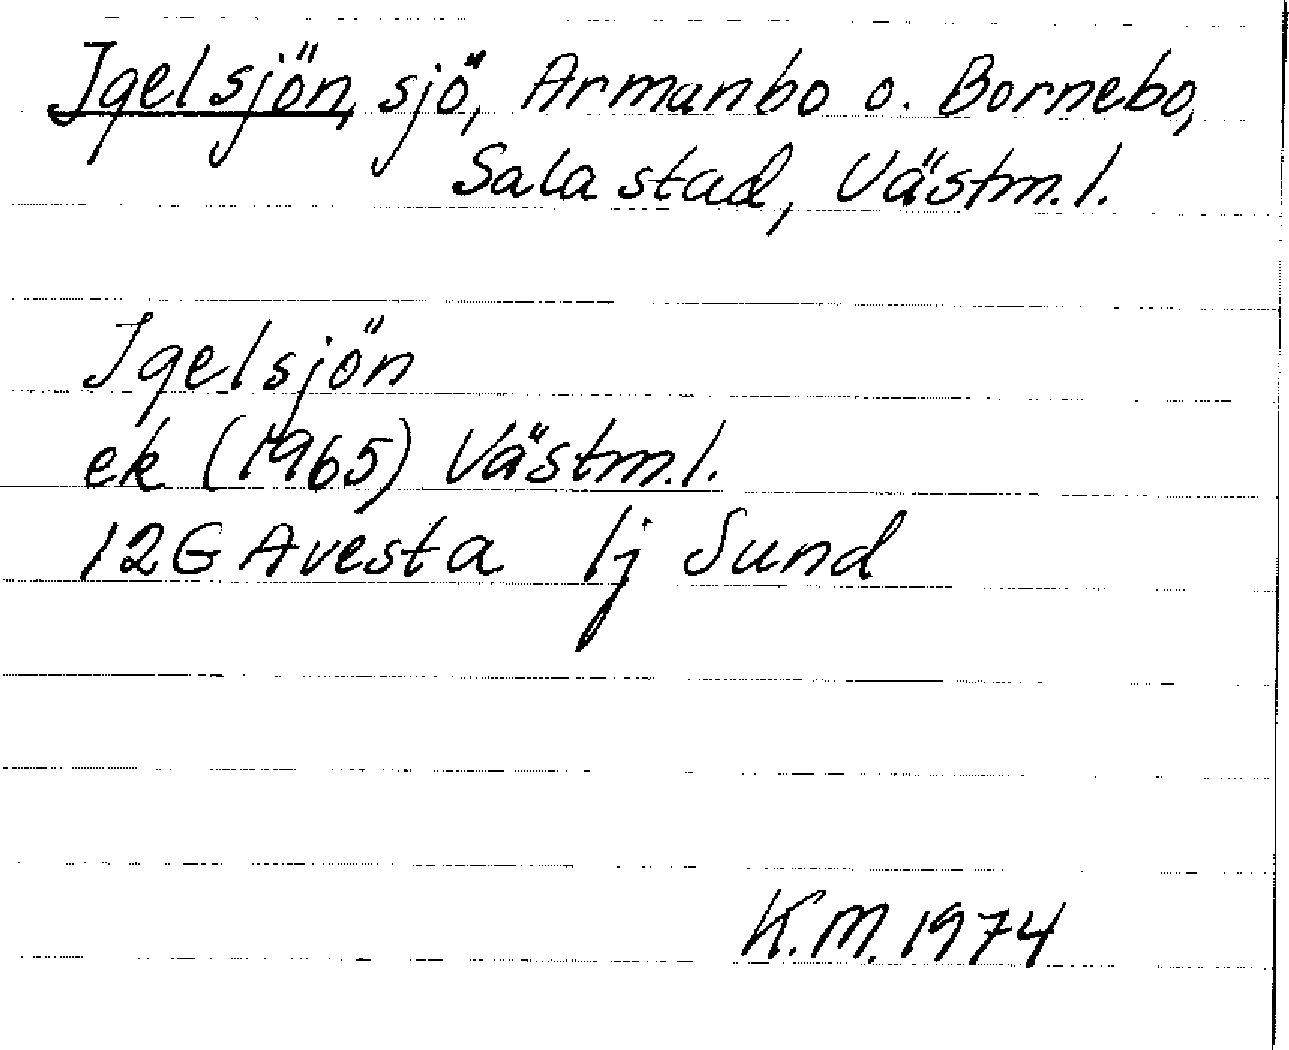 Igelsjön, sjö, Armanbo o. Bornebo,
Sala stad, Västm.l.
Igelsjön
ek (1965) Västm.l.
12G Avesta 1j Sund
K.M. 1974